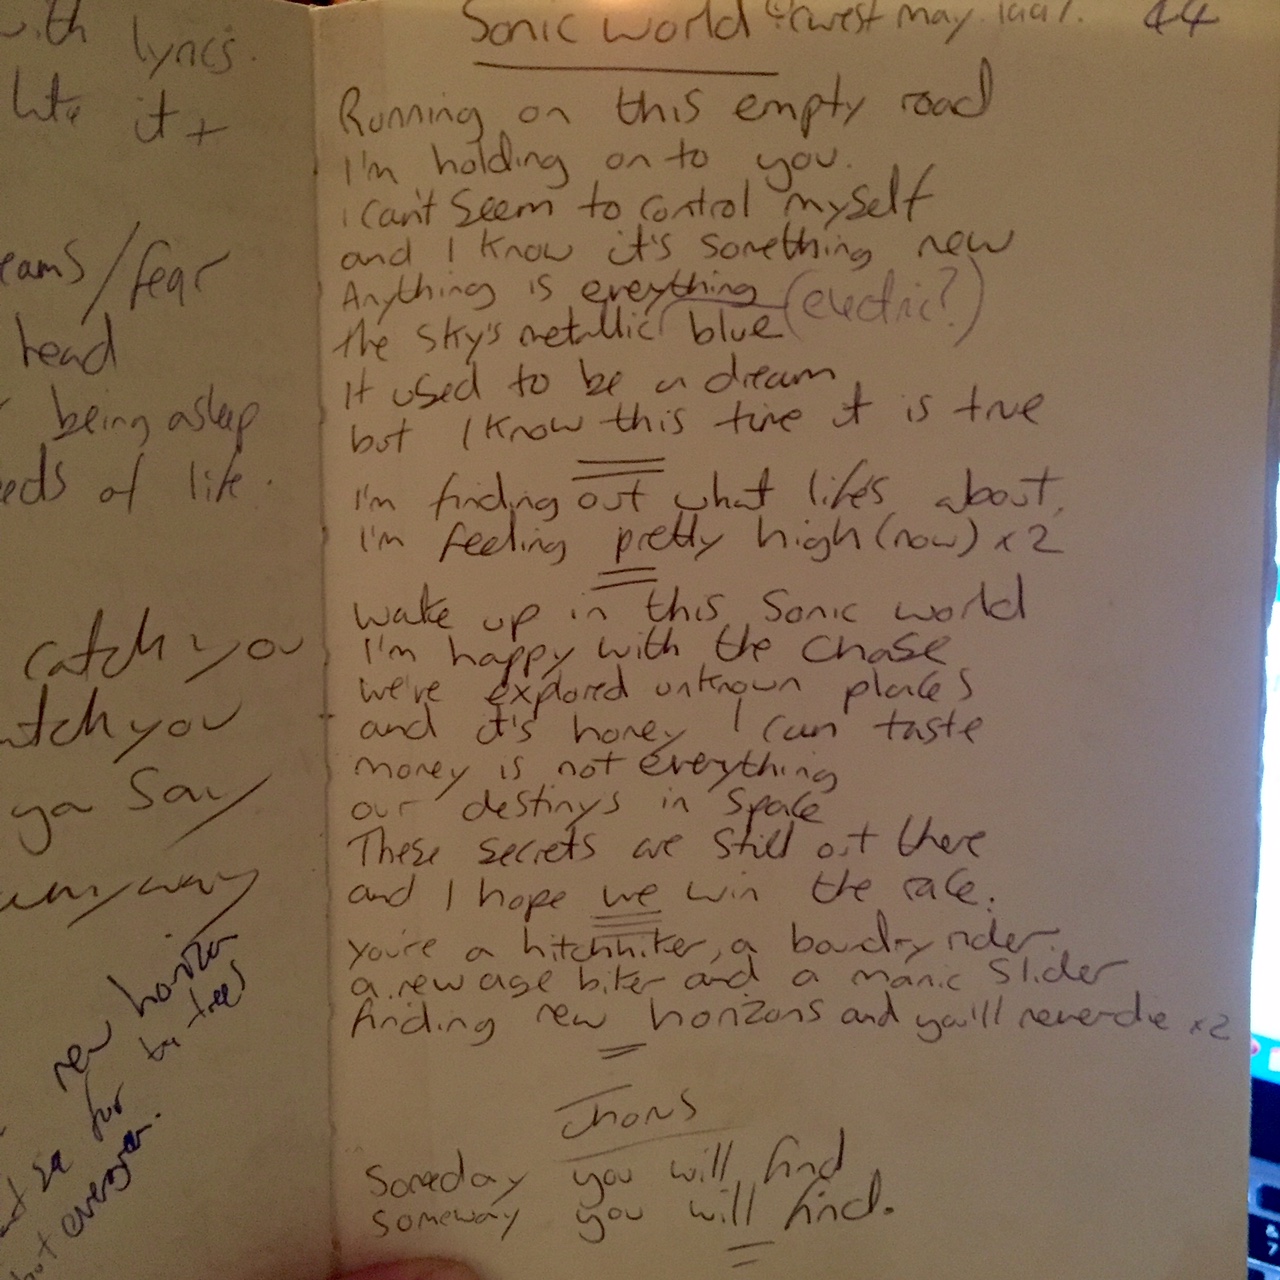 with lyrics.
like it +
eams/fear
head
being asleep
eds of life.
catch you
atch you
ya say
anyway
new horizon
for
trees
evergreen.
Sonic world may 1997. 44
Running on this empty road
I'm holding on to you.
i can't seem to control myself
and I know it's something new
Anything is ereything
the sky's metallic blue (electric?)
It used to be a dream
but I know this time it is true
I'm finding out what life's about,
I'm feeling pretty high (now) x2
wake up in this Sonic world
I'm happy with the chase
we've explored unknown places
and it's honey I can taste
money is not everything
our destinys in space
These secrets are still out there
and I hope we win the race.
you're a hitchhiker, a boundry rider.
a new age biker and a manic slider
finding new horizons and you'll never die x2
Someday you will find
someway you will find.